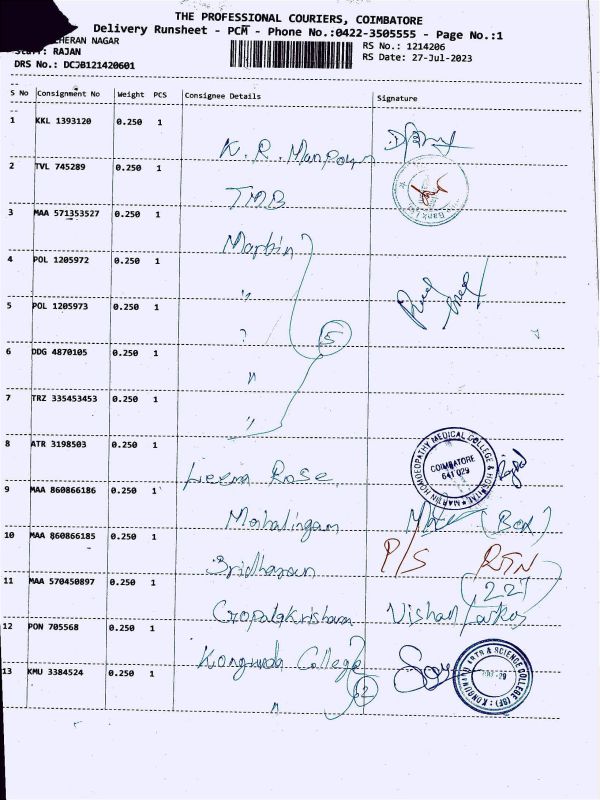 THE PROFESSIONAL COURIERS, COIMBATORE
Delivery Runsheet - PCM - Phone No.:0422-3505555 - Page No.:1
CHERAN NAGAR
RS No.: 1214206
Staff: RAJAN
RS Date: 27-Jul-2023
DRS No.: DCJB121420601
S No Consignment No Weight PCS Consignee Details Signature
1 KKL 1393120 0.250 1
K. R.
2 TVL 745289 0.250 1
TMB
3 MAA 571353527 0.250 1
Martin
4 POL 1205972 0.250 1
"
5 POL 1205973 0.250 1
5
6 DDG 4870105 0.250 1
"
7 TRZ 335453453 0.250 1
"
8 ATR 3198503 0.250 1
MARTIN HOMOEOPATHY MEDICAL COLLEGE & HOSPITAL
COIMBATORE
641 029
Rose
9 MAA 860866186 0.250 1
Mahalingam
10 MAA 860866185 0.250 1
P/S RTN
Sridharan
227
11 MAA 570450897 0.250 1
Gopalakrishnan
12 PON 705568 0.250 1
College
ARTS & SCIENCE COLLEGE
13 KMU 3384524 0.250 1
"